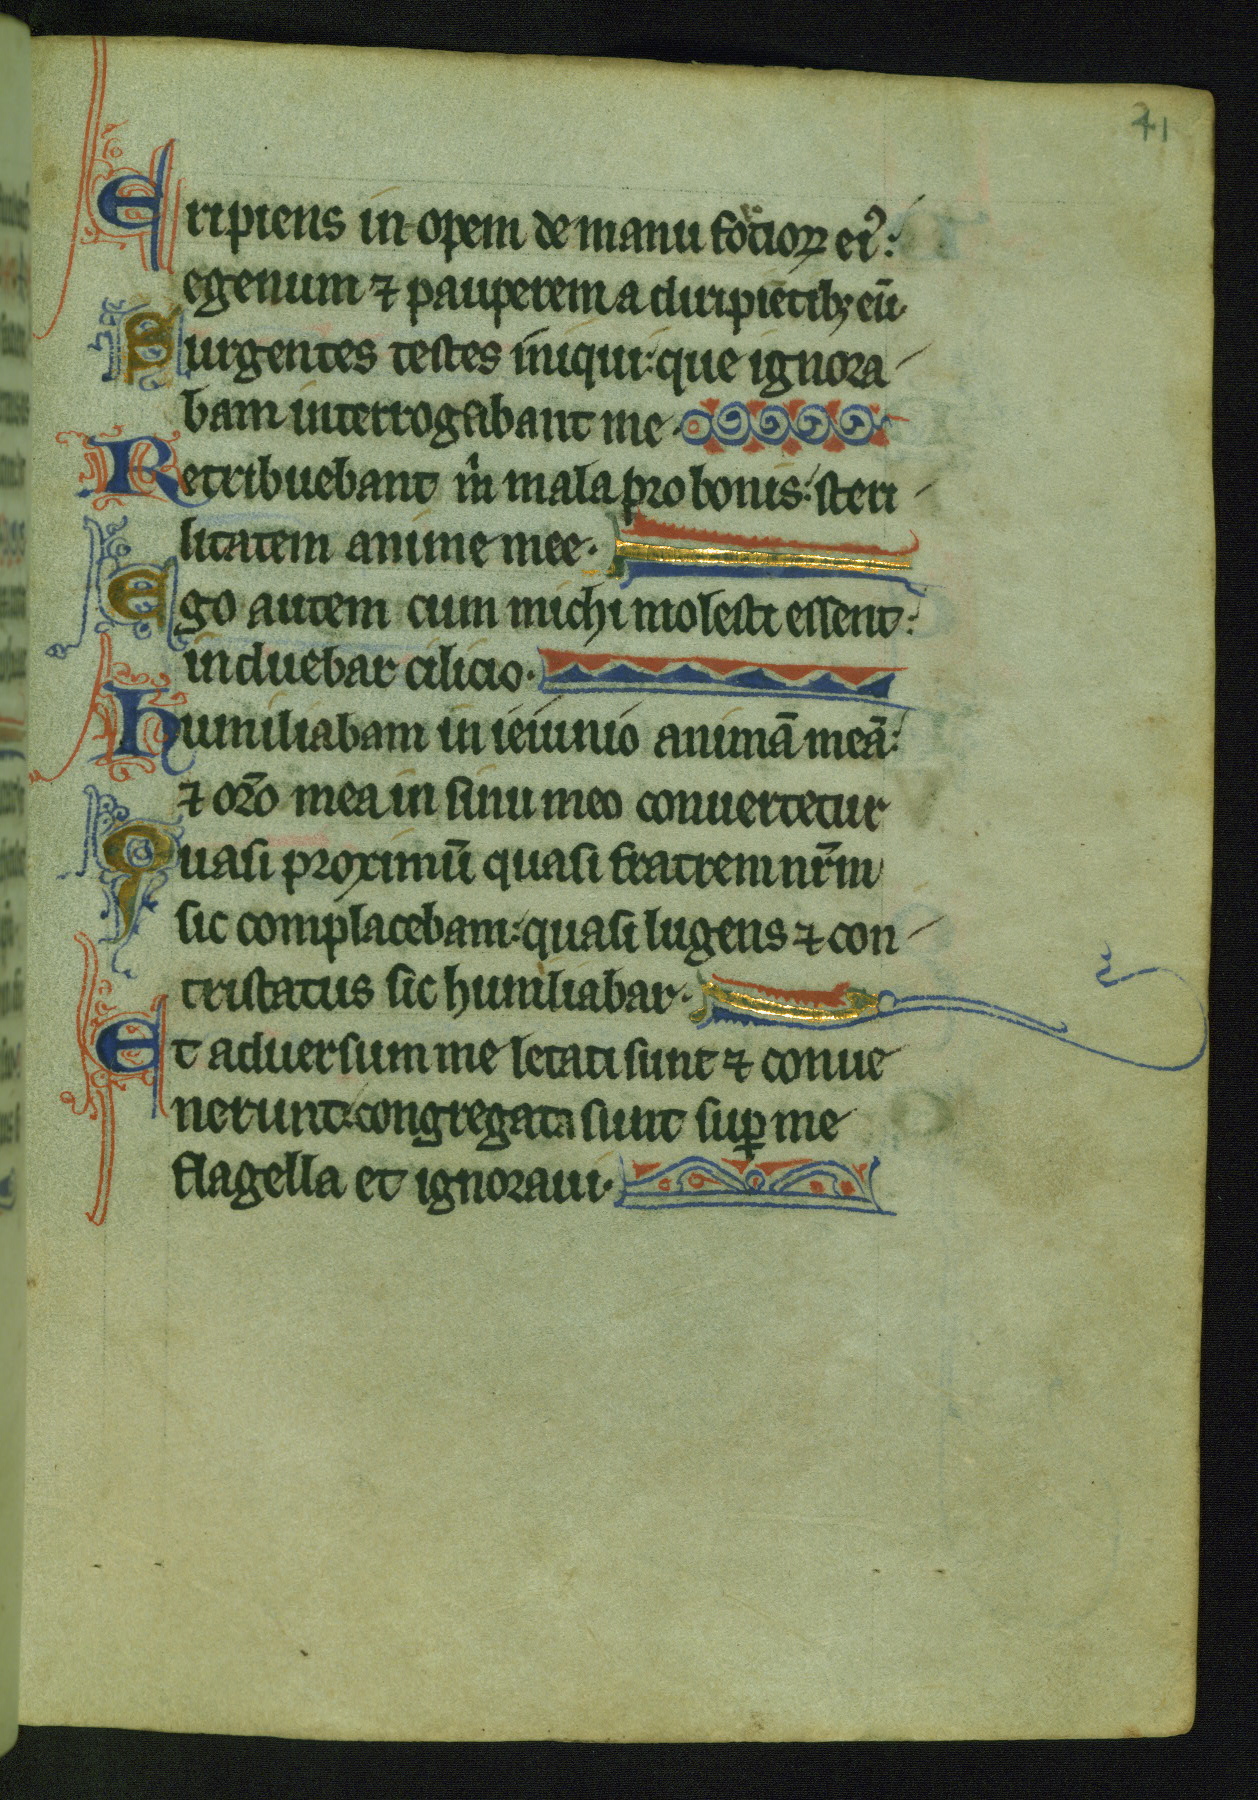 41
Eripiens inopem de manu forcioꝝ eiꝰ:
egenum ⁊ pauperem a diripiētibꝫ eū·
Surgentes testes iniqui: que ignora
bam interrogabant me·
Retribuebant m̍ mala pro bonis: steri
litatem anime mee·
Ego autem cum michi molesti essent:
induebar cilicio·
humiliabam in ieiunio animā meā:
⁊ orō mea in sinu meo conuertetur
Quasi proximū quasi fratrem nr̄m
sic complacebam: quasi lugens ⁊ con
tristatus sic humiliabar·
Et aduersum me letati sunt ⁊ conue
nerunt: congregata sunt suꝑ me
flagella et ignoraui·